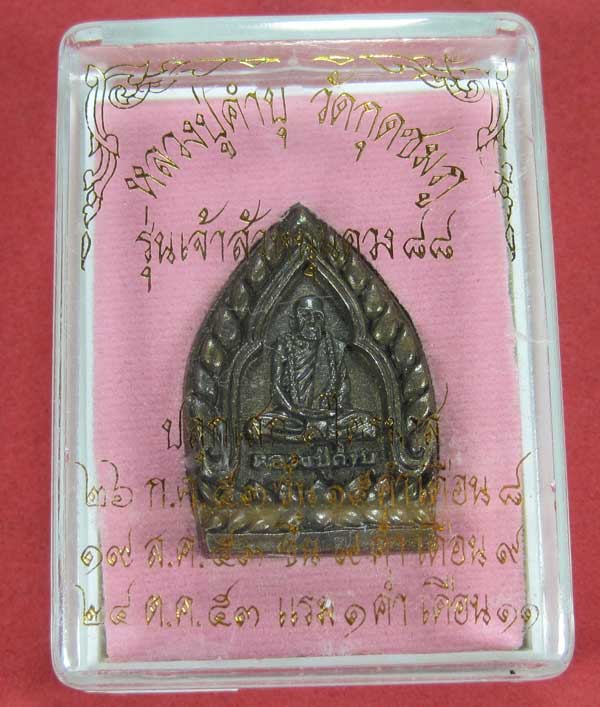 หลวงปู่คำบุ วัดกุดชมภู
รุ่นเจ้าสัว ดวง ๘๘
ปลุกเสก
หลวงปู่คำบุ
๒๖ ก.ค. ๕๓ ขึ้น ๑๕ ค่ำ เดือน ๘
๑๙ ส.ค. ๕๓ ขึ้น ๙ ค่ำ เดือน ๙
๒๔ ต.ค. ๕๓ แรม ๑ ค่ำ เดือน ๑๑